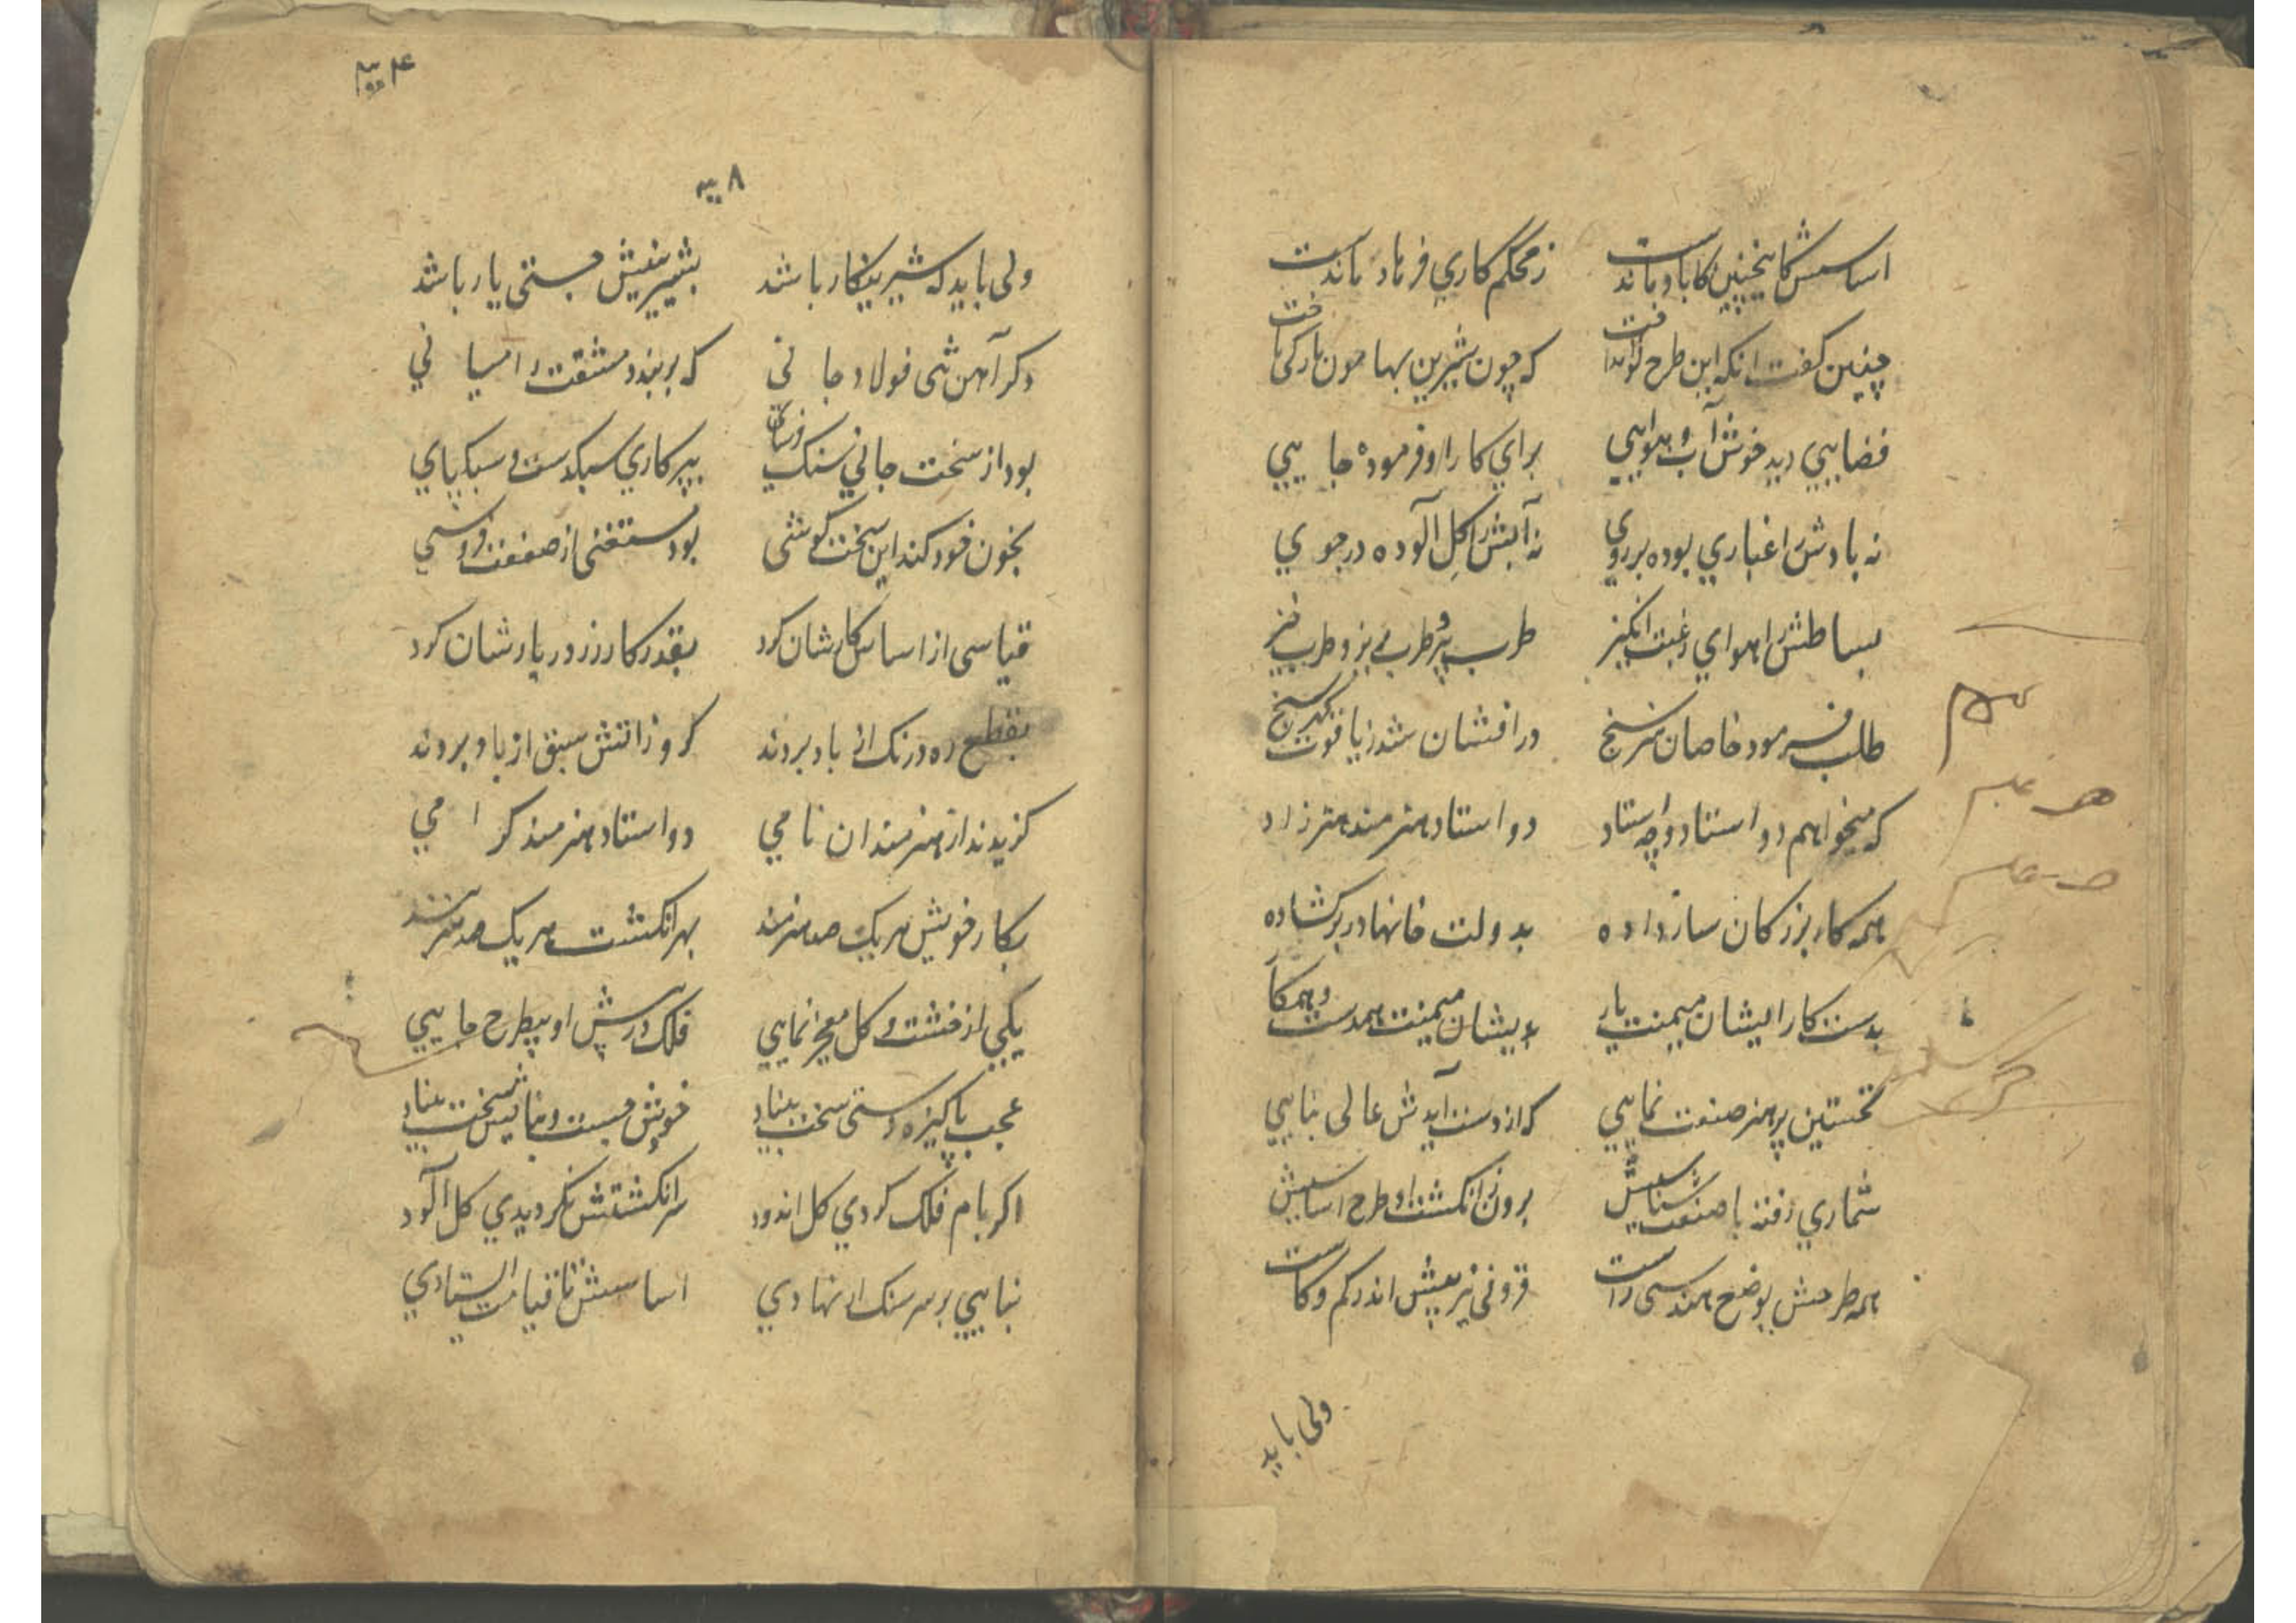 اساسش کاینچنین کاباد ماندست ز محکم کاری فرهاد ماندست
چنین گفت انکه این طرح نو انداخت که چون شیرین بها مون بارکی تاخت
فضایی دید خوش آب و هوایی برای کار او فرموده جایی
نه بادش را غباری بوده بر روی نه آبش را کل آلوده در جوی
بساطش را هوای رغبت انکیز طرب پر و طرب بیز و طرب خیز
طلب فرمود خاصان هنرسنج درافشان شد ز یاقوت کهرسنج
که میخواهم دو استاد و چه استاد دو استاد هنرمند هنرزاد
همه کار بزرکان ساز داده بدولت خانها در برکشاده
بدست کار ایشان میمنت یار بدیشان میمنت همدست و همکار
نخستین پر هنر صنعت نمایی که از دست آیدش عالی بنایی
شماری رفته با صنعت شناسیش برون ز انکشت او طرح اساسیش
همه طرحش بوضع هندسی راست فزونی نز پیش اندر کم و کاست
ولی باید
۸
ولی باید که شیرینکار باشد بشیرینیش جستی یار باشد
دکر آهن تنی فولاد جانی که بربندد مشقت را میانی
بود از سخت جانی سنک فرسای بپرکاری سبکدست و سبکپای
بخون خود کند این سخت کوشی بود مستغنی از صنعت فروشی
قیاسی از اساس کارشان کرد بقدر کار زر در بارشان کرد
بقطع ره درنک از باد بردند کرو ز اتش سبق از باد بردند
کزیدند از هنرمندان نامی دو استاد هنرمند کرامی
بکار خویش هر یک صد هنرمند بهر انکشت هر یک صد هنر بند
یکی از خشت و کل معجز نمایی فلک درپیش او پیطرح جایی
عجب پاکیزه دستی سخت بنیاد خوش جست و بنایش سخت بنیاد
اکر بام فلک کردی کل اندود سر انکشتش نکردیدی کل آلود
بنایی بر سر سنک ار نهادی اساسش تا قیامت ایستادی